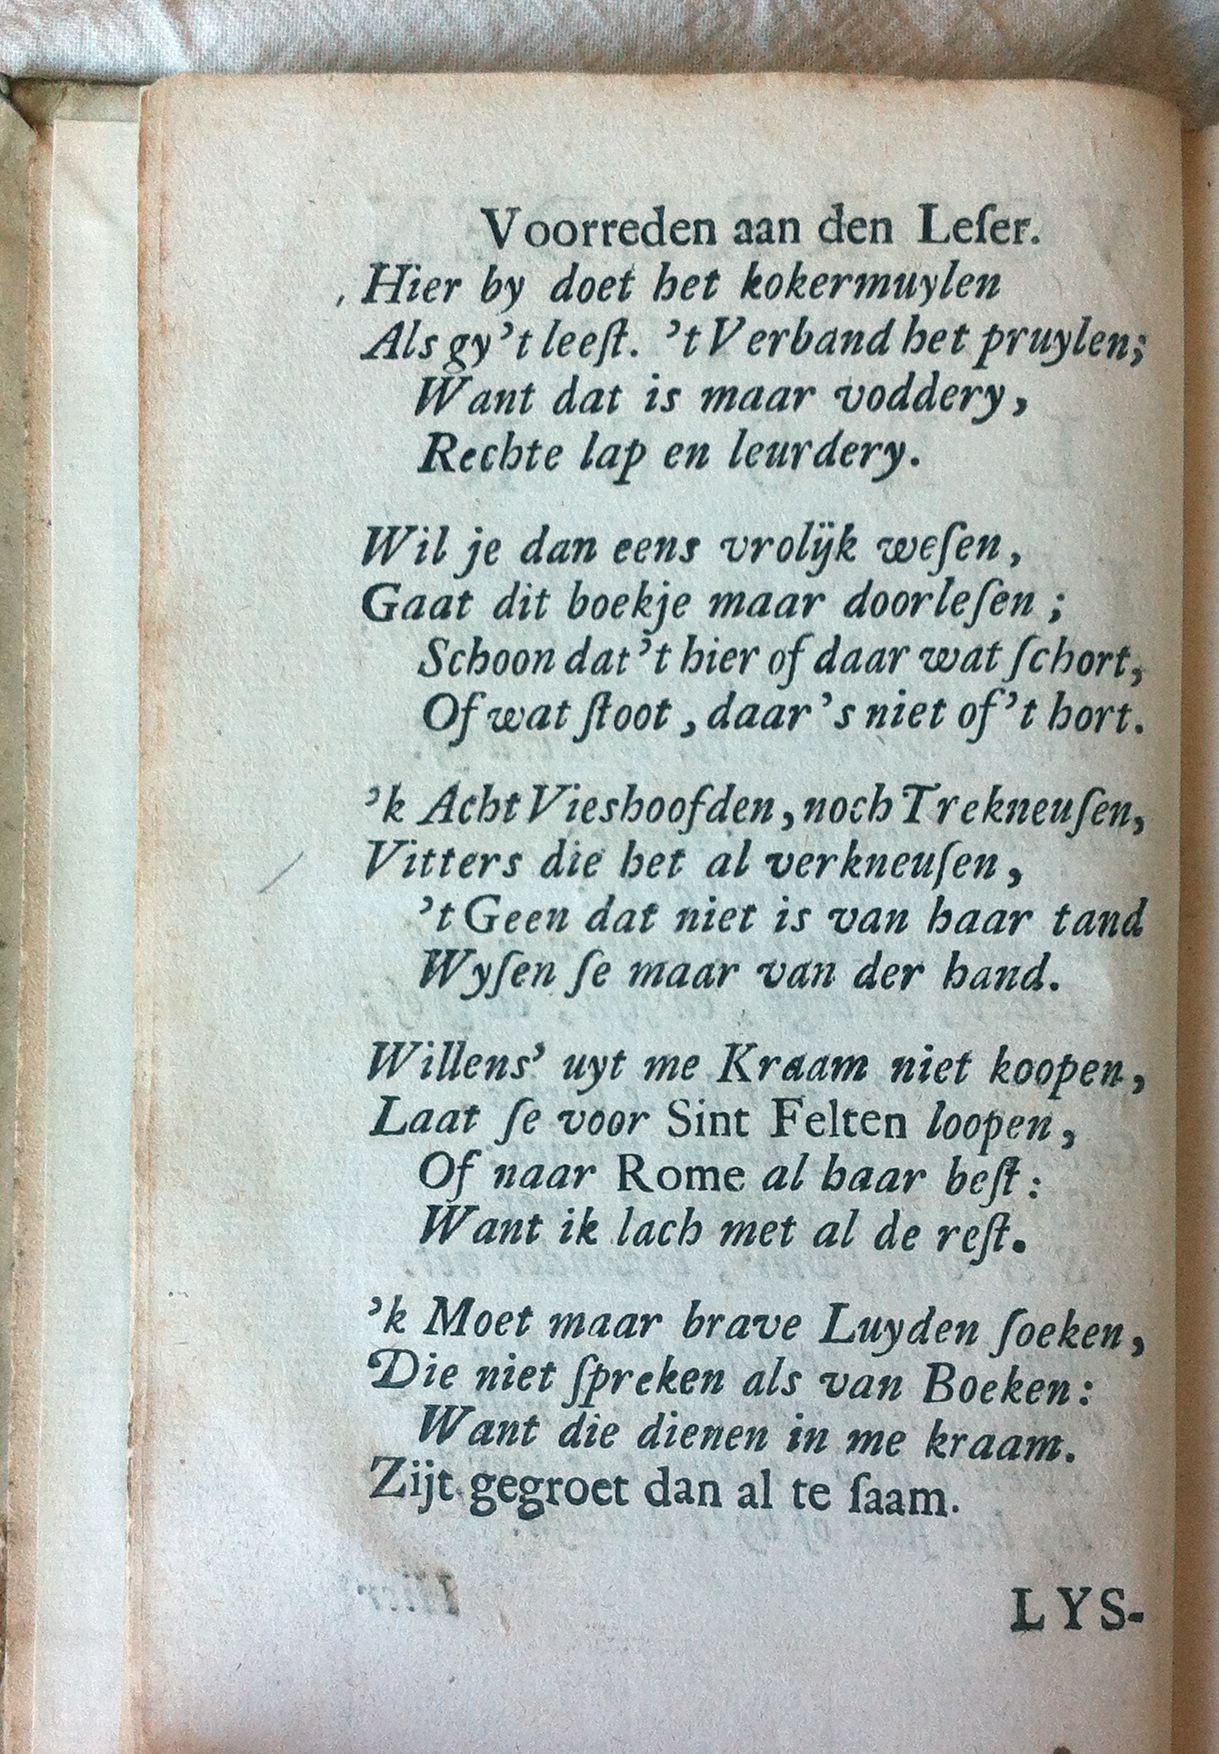 Voorreden aan den Leſer.
Hier by doet het kokermuylen
Als gy 't leeſt. 't Verband het pruylen;
Want dat is maar voddery,
Rechte lap en leurdery.
Wil je dan eens vrolijk weſen,
Gaat dit boekje maar doorleſen;
Schoon dat 't hier of daar wat ſchort,
Of wat ſtoot, daar's niet of 't hort.
'k Acht Vieshoofden, noch Trekneuſen,
Vitters die het al verkneuſen,
't Geen dat niet is van haar tand
Wyſen ſe maar van der hand.
Willens' uyt me Kraam niet koopen,
Laat ſe voor Sint Felten loopen,
Of naar Rome al haar beſt:
Want ik lach met al de reſt.
'k Moet maar brave Luyden ſoeken,
Die niet ſpreken als van Boeken:
Want die dienen in me kraam.
Zijt gegroet dan al te ſaam.
LYS-